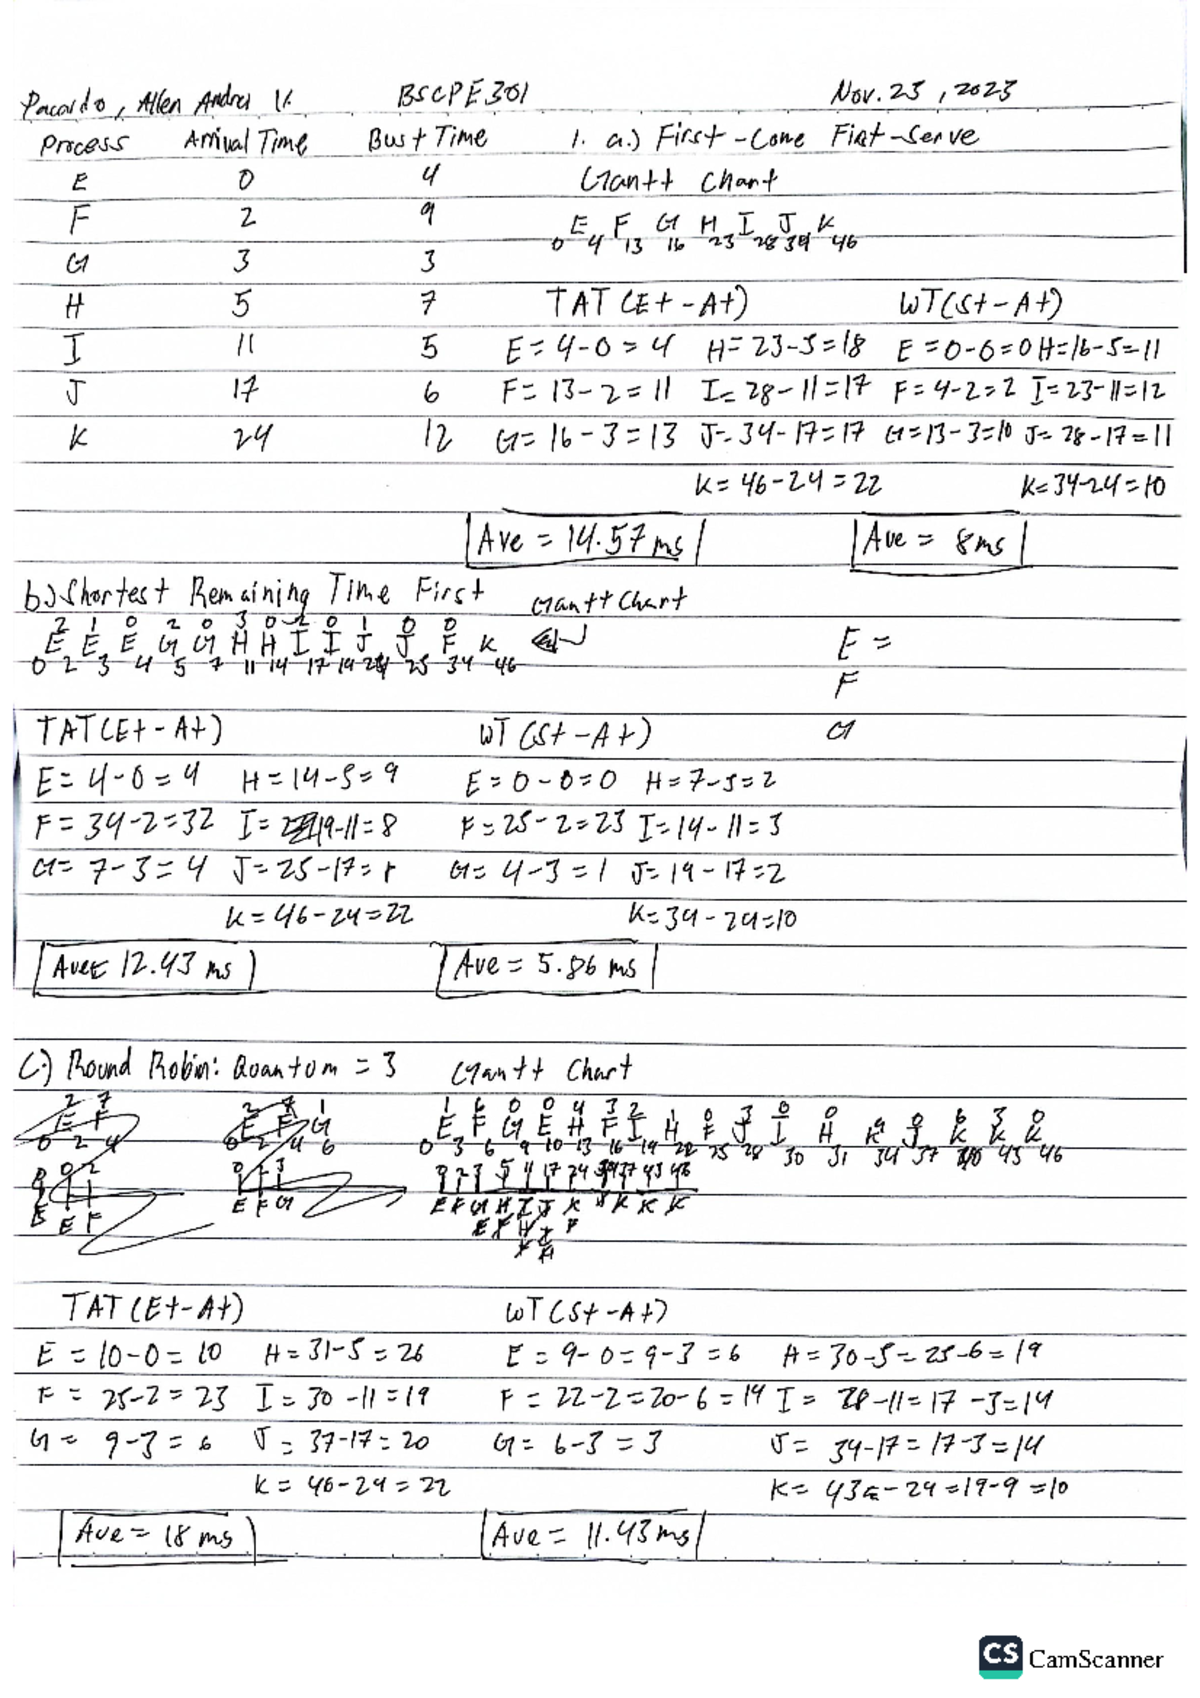 Pacardo, Allen Andrei V. BSCPE301 Nov. 23, 2023
Process Arrival Time Bust Time 1. a.) First-Come First-Serve
E 0 4 Gantt Chart
F 2 9 E F G H I J K
0 4 13 16 23 28 34 46
G 3 3
H 5 7 TAT(Et-At) WT(St-At)
I 11 5 E=4-0=4 H=23-5=18 E=0-0=0 H=16-5=11
J 17 6 F=13-2=11 I=28-11=17 F=4-2=2 I=23-11=12
K 24 12 G=16-3=13 J=34-17=17 G=13-3=10 J=28-17=11
K=46-24=22 K=34-24=10
Ave = 14.57 ms Ave = 8ms
b.) Shortest Remaining Time First Gantt Chart
2 1 0 2 0 3 0 2 0 1 0 0
E E E G G H H I I J J F K E =
0 2 3 4 5 7 11 14 17 19 24 25 34 46 F
TAT(Et-At) WT(St-At) G
E=4-0=4 H=14-5=9 E=0-0=0 H=7-5=2
F=34-2=32 I=19-11=8 F=25-2=23 I=14-11=3
G=7-3=4 J=25-17=8 G=4-3=1 J=19-17=2
K=46-24=22 K=34-24=10
Ave= 12.43 ms Ave = 5.86 ms
C.) Round Robin: Quantum = 3 Gantt Chart
2 7 2 7 1 1 6 0 0 4 3 2 1 0 3 0 0 9 0 6 3 0
E F E F G E F G E H F I H F J I H K J K K K
0 2 4 0 2 4 6 0 3 6 9 10 13 16 19 22 25 28 30 31 34 37 40 43 46
0 0 2 0 2 3 0 2 3 5 11 17 24 34 37 43 46
E E F E F G E F G H I J K K K K
E F H I F
TAT(Et-At) WT(St-At)
E = 10-0=10 H=31-5=26 E = 9-0=9-3=6 H=30-5=25-6=19
F = 25-2=23 I=30-11=19 F=22-2=20-6=14 I= 28-11=17-3=14
G = 9-3=6 J=37-17=20 G=6-3=3 J= 34-17=17-3=14
K=46-24=22 K= 43-24=19-9=10
Ave = 18 ms Ave = 11.43 ms
CS CamScanner